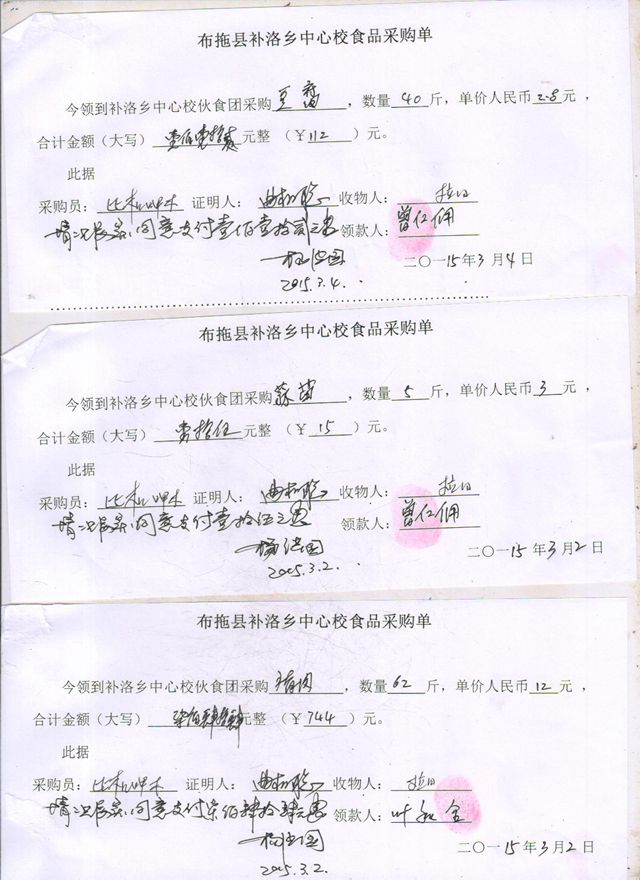 布拖县补洛乡中心校食品采购单
今领到补洛乡中心校伙食团采购豆腐，数量 40 斤，单价人民币 2.8 元，
合计金额（大写）壹佰壹拾贰元整 （￥112）元。
此据
采购员： 证明人： 收物人：拉日
情况属实，同意支付壹佰壹拾贰元 领款人：曾仁俑
2015.3.4. 二〇一15年3月4日
布拖县补洛乡中心校食品采购单
今领到补洛乡中心校伙食团采购蒜苗，数量 5 斤，单价人民币 3 元，
合计金额（大写）壹拾伍元整 （￥15）元。
此据
采购员： 证明人： 收物人：拉日
情况属实，同意支付壹拾伍元 领款人：曾仁俑
2015.3.2. 二〇一15年3月2日
布拖县补洛乡中心校食品采购单
今领到补洛乡中心校伙食团采购 ，数量 62 斤，单价人民币 12 元，
合计金额（大写）柒佰肆拾肆元整 （￥744）元。
此据
采购员： 证明人： 收物人：拉日
情况属实，同意支付柒佰肆拾肆元 领款人：叶和全
2015.3.2. 二〇一15年3月2日